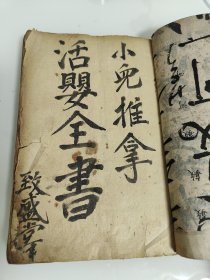 小兒推拿
活嬰全書
致盛堂